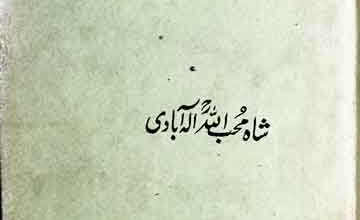 شاہ مُحب اللہؒ الہ آبادی